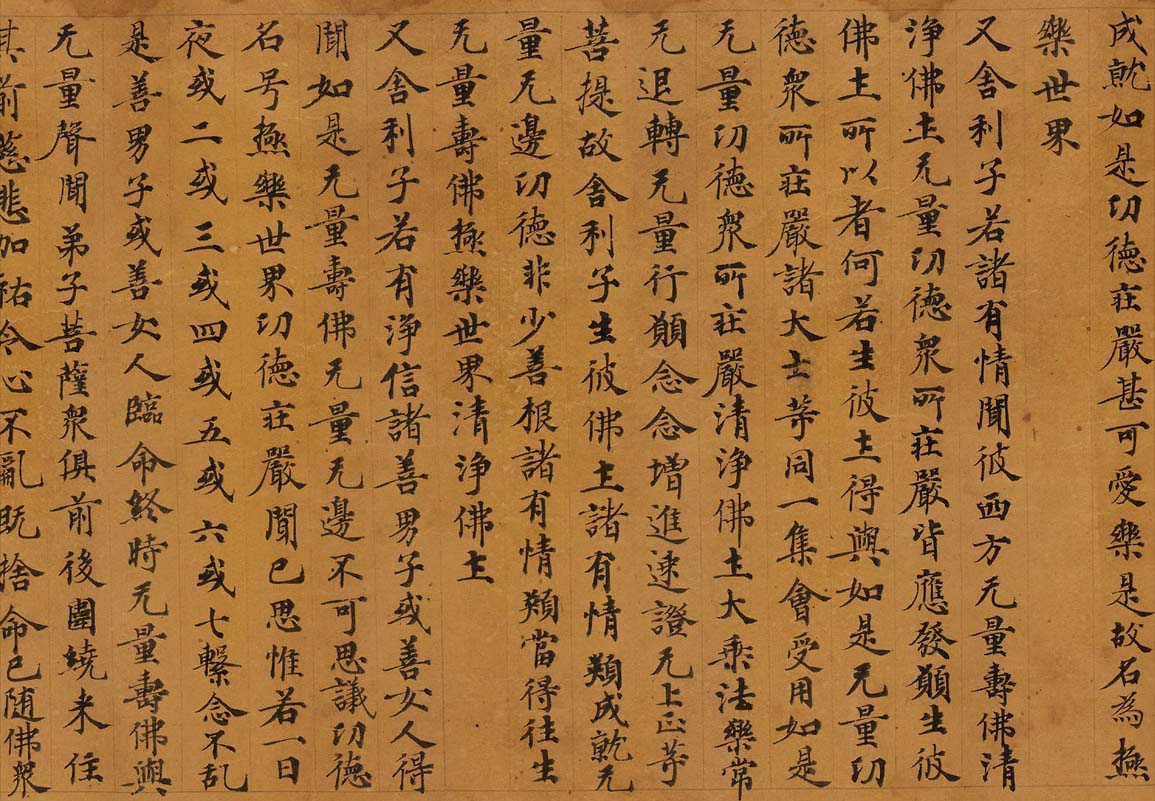 成就如是功德莊嚴甚可愛樂是故名為極
樂世界
又舍利子若諸有情聞彼西方无量壽佛清
淨佛土无量功德衆所莊嚴皆應發願生彼
佛土所以者何若生彼土得與如是无量功
德衆所莊嚴諸大士等同一集會受用如是
无量功德衆所莊嚴清淨佛土大乘法樂常
无退轉无量行願念念增進速證无上正等
菩提故舍利子生彼佛土諸有情類成就无
量无邊功德非少善根諸有情類當得往生
无量壽佛極樂世界清淨佛土
又舍利子若有淨信諸善男子或善女人得
聞如是无量壽佛无量无邊不可思議功德
名号極樂世界功德莊嚴聞已思惟若一日
夜或二或三或四或五或六或七繫念不乱
是善男子或善女人臨命終時无量壽佛與
无量聲聞弟子菩薩衆俱前後圍繞来住
其前慈悲加祐令心不亂既捨命已随佛衆